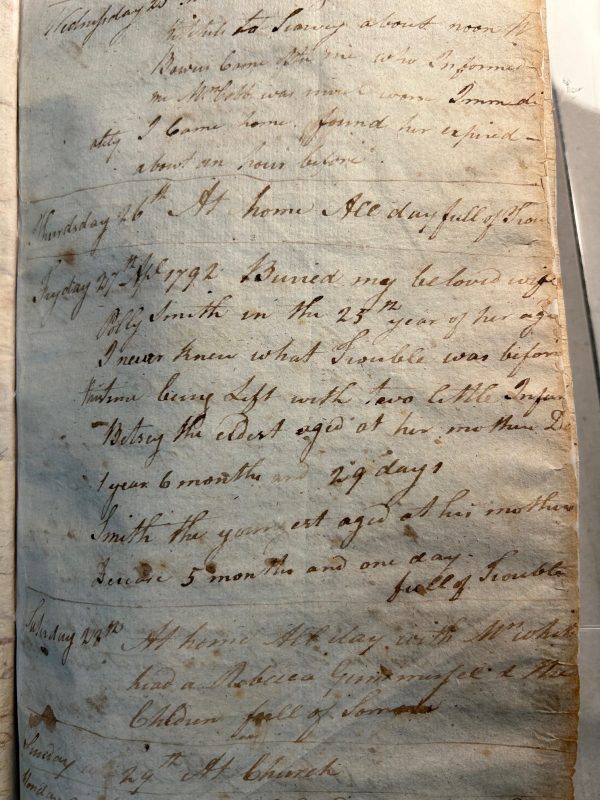 Wednesday 25
to about noon W
Came after me who Informed
me Mrs Cobb was much worse Immedi
atly I Came home found her expired
about an hour before
Thursday 26th At home All day full of Trou
Fryday 27th Apl 1792 Buried my beloved wife
Polly Smith in the 25th year of her age
I never knew what Trouble was before
this time being Left with two little Infan
Betsey the eldest aged at her mothers De
1 year 6 months and 29 days
Smith the youngest aged at his mothers
Decease 5 months and one day.
full of Trouble
Saturday 28th At home All day with Mrs
had a Rebecca & the
Children full of Sorrow
Sunday 29th At Church
Monday